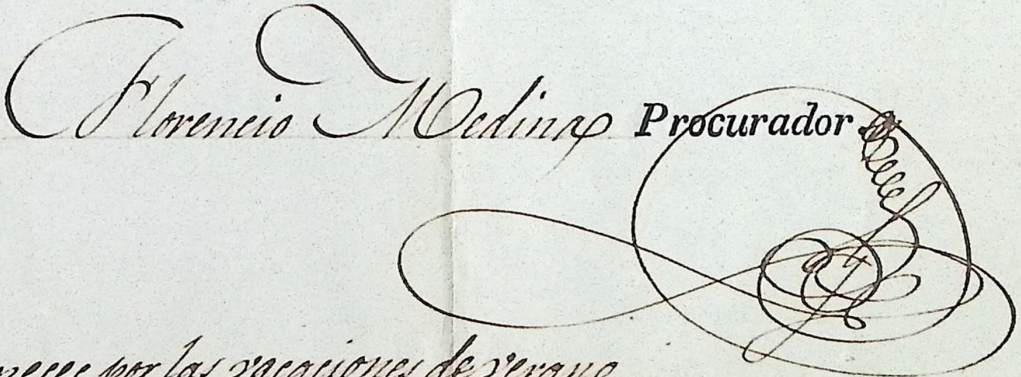 Florencio Medina Procurador.
por las vacaciones de verano